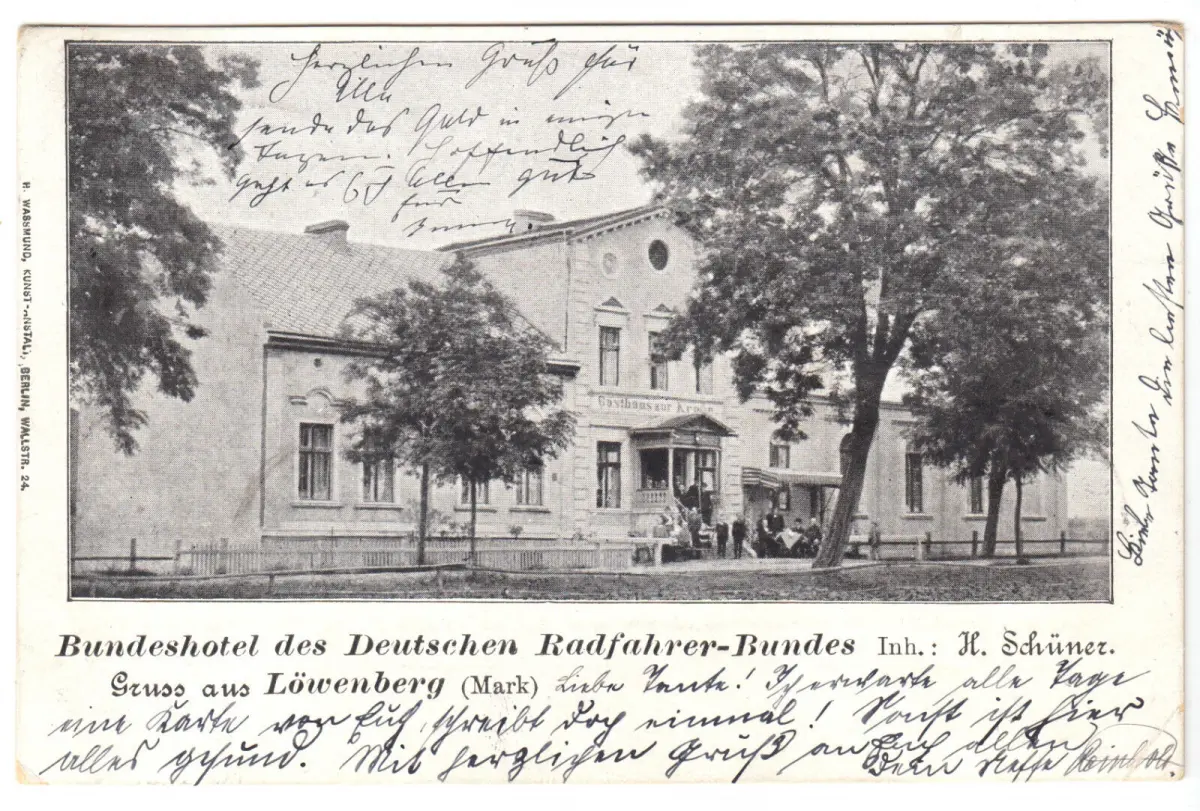 Herzlichen Gruß für
Alle
sende das Geld in einige
Tagen. Hoffendlich
geht es Euch Allen gut
H. WASSMUND, KUNST-ANSTALT, BERLIN, WALLSTR. 24.
Gasthaus zur Krone
Liebe Tante die besten Grüße
Bundeshotel des Deutschen Radfahrer-Bundes Inh.: H. Schüner.
Gruss aus Löwenberg (Mark) Liebe Tante! Ich erwarte alle Tage
eine Karte von Euch, schreibt doch einmal! Sonst ist hier
alles gesund. Mit herzlichen Gruß an Euch allen
Dein Neffe Reinhold.